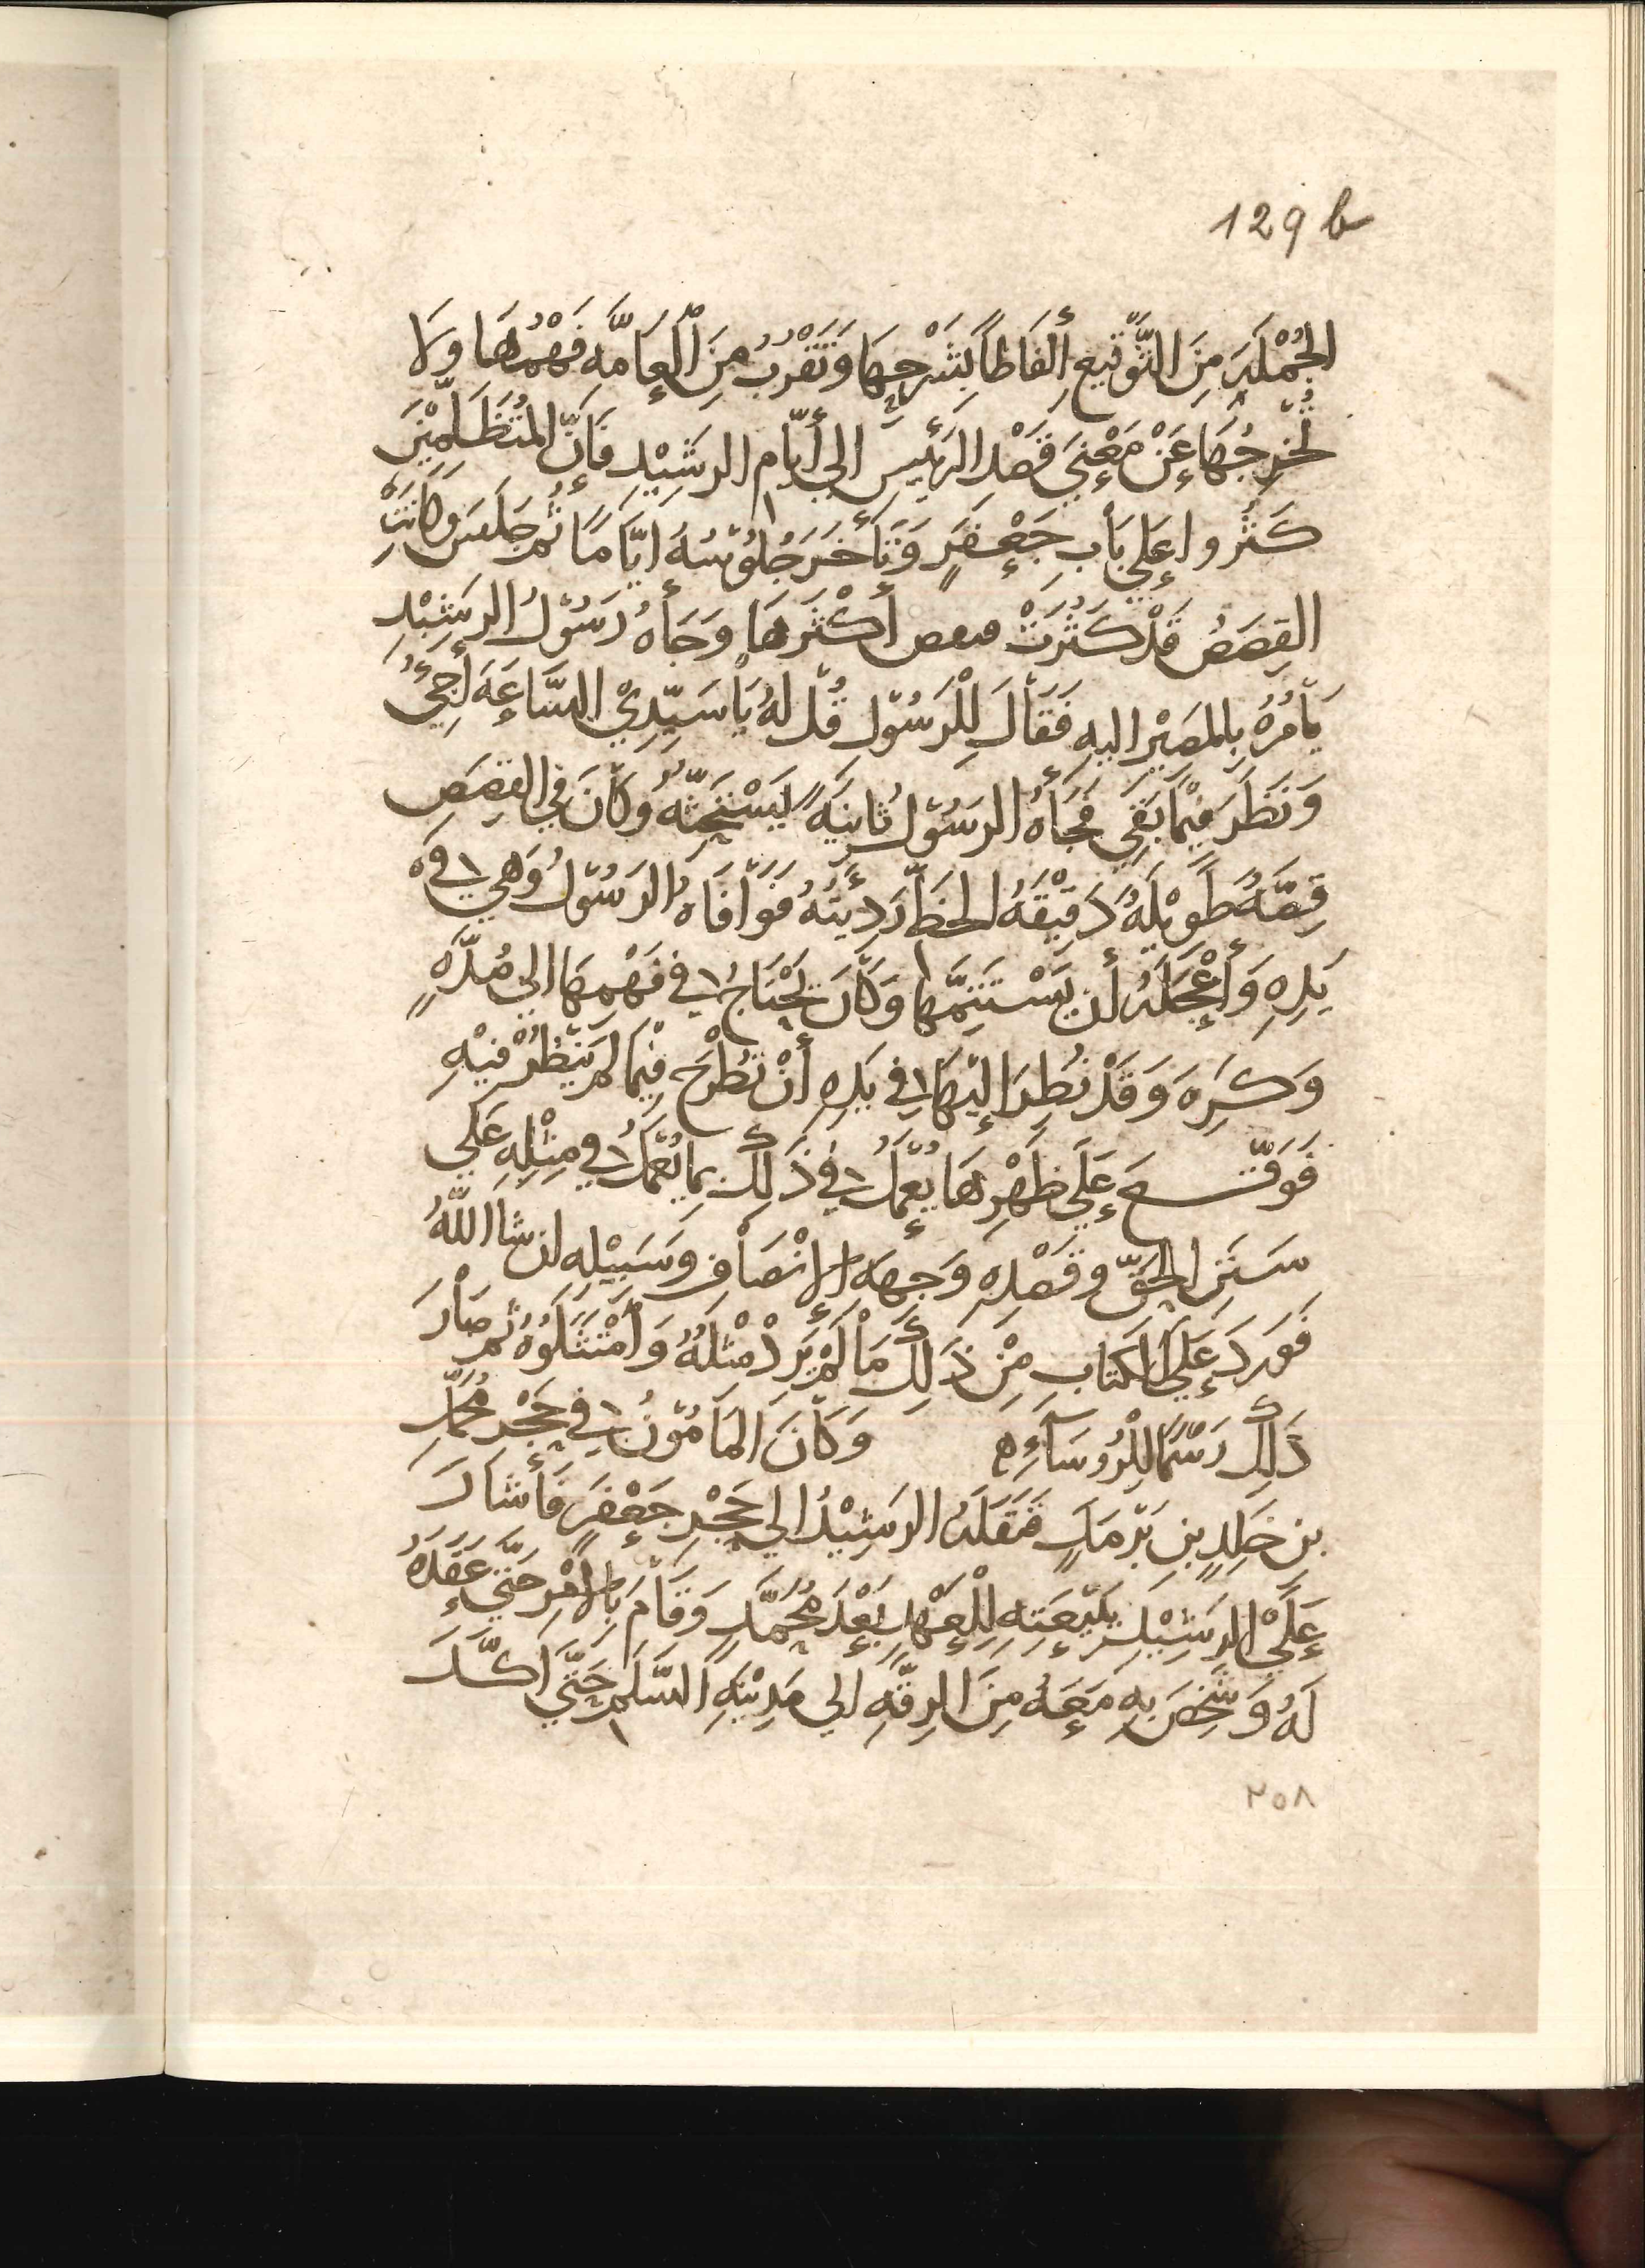 129 b
الجُمْلَةِ مِنَ التَّوْقيعِ أَلْفَاظاً بِشَرْحِهَا وَتَقْرُبُ مِنَ الْعَامَّهِ فَهْمُهَا وَلَا
تُخرِجُهَا عَنْ مَعْنِي قَصْدِ الرَئيسِ الي أَيّام الرشِيْدِ فَإنَّ المُتَظَلِّمِيْنَ
كَثُروا عَلي بَابِ جَعْفَرٍ وَتَأَخَرَ جُلُوْسُهُ ايَّامًا ثُم جَلَسَ وَكَانَتْ
القِصَصُ قَدْ كَثُرَتْ أَكْثَرهَا وَجَأهُ رَسُوْلُ الرشِيْدِ
يَأمُرُهُ بِالمَصِيْرِ اليهِ فَقَالَ لِلْرَسُوْلِ قُل لهُ يَا سَيِّدِيْ السَّاعَهَ أَجِيُ
وَنَظَرَ فِيْمَا بَقِيَ فَجَأهُ الرسُوْلُ ثَانِيَهً يَسْتَحِثّهُ وَكَانَ في القِصَصِ
قِصَّهٌ طَوِيْلهٌ دَقِيْقَهُ الخطِّ رَدِيئَهٌ فَوَافَاهُ الرَسُوْلُ وَهي في
يَدِهِ وَأَعْجَلَهُ أن يَسْتَتِمَّهَا وَكَانَ يَحْتَاجُ في فَهْمِهَا الي مُدَّهٍ
وَكَرِهَ وَقَدْ نُظِرَ إليْهَا في يَدِهِ أَنْ تُطْرَحَ فِيْمَا لم يُنْظَرْ فِيْهِ
فَوَقّع عَلَي ظَهْرِهَا يُعْمَلُ في ذَلِكَ بِمَا يُعْمَلُ في مِثْلِهِ عَلَي
سَنَنِ الحَقِّ وقَصْدِهِ وَجِهَهِ الإنْصَافِ وَسَبِيْلِهِ ان شا اللّهُ
فَوَرَدَ عَلَي الكتابِ مِنْ ذَلِكَ مَا لَمْ يَرِدْ مِثْلهُ وَامْتَثَلُوْهُ ثم صَارَ
ذَلِكَ رَسْمًا لِلْرُوسَآءِ وَكَانَ المَامُوْنُ في حِجْرِ مُحَمَّدِ
بنِ خَلِدِ بنِ بَرْمَكٍ فَنَقَلَهُ الرَشِيْدُ الي حَجْرِ جَعْفَرٍ فَأَشَارَ
عَلَيْ الرشِيْدِ بِبَيْعَتِهِ لِلْعَهْدِ بَعْدَ مُحَمَّدٍ وَقَامَ بِالأَمْرِ حَتّي عَقَدَهُ
لَهُ وَشَخَصَ بِهِ مَعَهُ مِنَ الرقَّهِ الي مَدِيْنَهِ السَّلَمِ حَتَّي اكَّدَ
٢٥٨